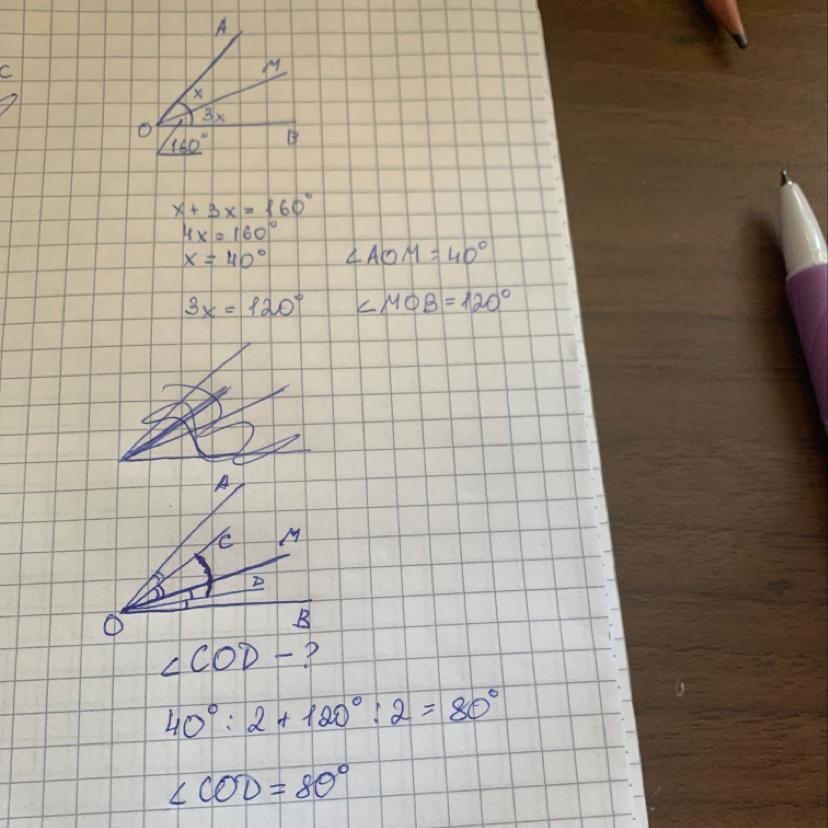 C
A
M
x
3x
O
B
160°
x + 3x = 160°
4x = 160°
x = 40° ∠AOM = 40°
3x = 120° ∠MOB = 120°
A
C
M
D
O
B
∠COD - ?
40° : 2 + 120° : 2 = 80°
∠COD = 80°